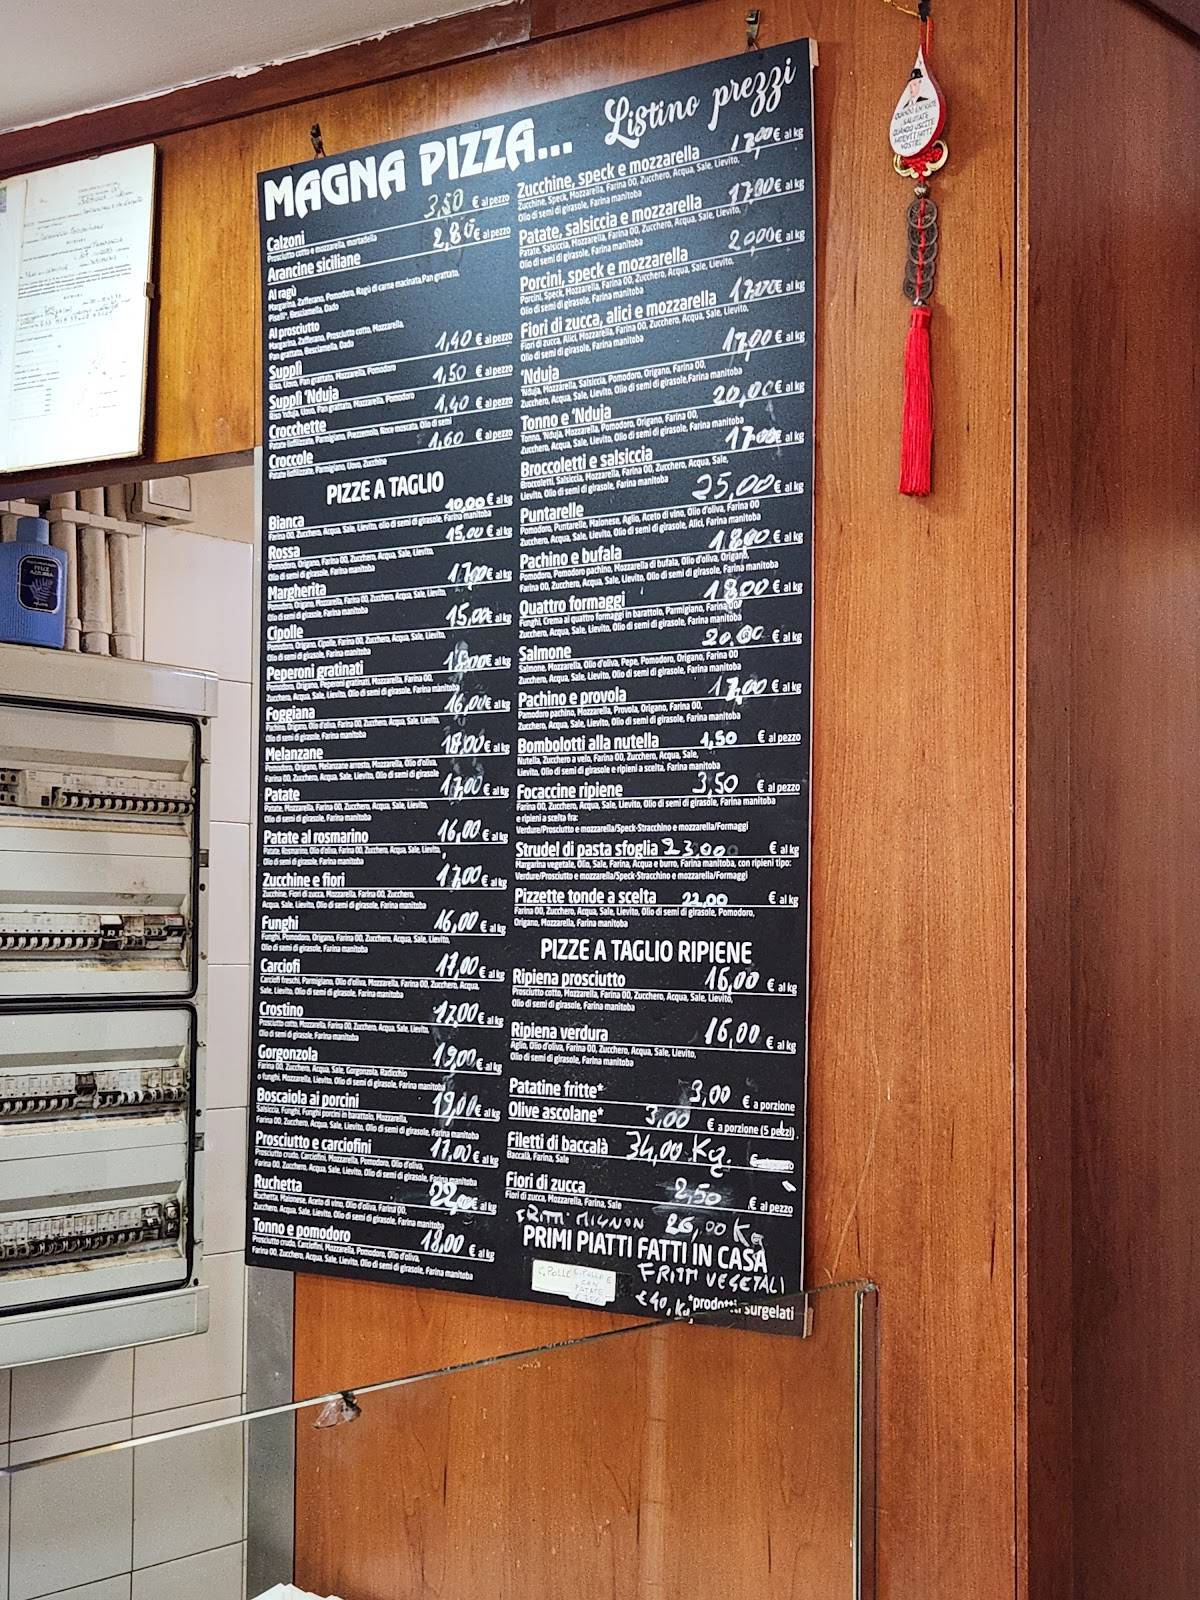 MAGNA PIZZA...
Listino prezzi
Calzoni 3,50 € al pezzo
Prosciutto cotto e mozzarella, mortadella
Arancine siciliane 2,80 € al pezzo
Al ragù
Margarina, Zafferano, Pomodoro, Ragù di carne macinata, Pan grattato,
Piselli*, Besciamella, Dado
Al prosciutto
Margarina, Zafferano, Prosciutto cotto, Mozzarella,
Pan grattato, Besciamella, Dado
Supplì 1,40 € al pezzo
Riso, Uovo, Pan grattato, Mozzarella, Pomodoro
Supplì 'Nduja 1,50 € al pezzo
Riso 'nduja, Uovo, Pan grattato, Mozzarella, Pomodoro
Crocchette 1,40 € al pezzo
Patate liofilizzate, Parmigiano, Prezzemolo, Noce moscata, Olio di semi
Croccole 1,60 € al pezzo
Patate liofilizzate, Parmigiano, Uovo, Zucchine
PIZZE A TAGLIO
Bianca 10,00 € al kg
Farina 00, Zucchero, Acqua, Sale, Lievito, olio di semi di girasole, Farina manitoba
Rossa 15,00 € al kg
Pomodoro, Origano, Farina 00, Zucchero, Acqua, Sale, Lievito,
Olio di semi di girasole, Farina manitoba
Margherita 17,00 € al kg
Pomodoro, Origano, Mozzarella, Farina 00, Zucchero, Acqua, Sale, Lievito,
Olio di semi di girasole, Farina manitoba
Cipolle 15,00 € al kg
Pomodoro, Origano, Cipolle, Farina 00, Zucchero, Acqua, Sale, Lievito,
Olio di semi di girasole, Farina manitoba
Peperoni gratinati 18,00 € al kg
Pomodoro, Origano, Peperoni gratinati, Mozzarella, Farina 00,
Zucchero, Acqua, Sale, Lievito, Olio di semi di girasole, Farina manitoba
Foggiana 16,00 € al kg
Pachino, Origano, Olio d'oliva, Farina 00, Zucchero, Acqua, Sale, Lievito,
Olio di semi di girasole, Farina manitoba
Melanzane 18,00 € al kg
Pomodoro, Origano, Melanzane arrosto, Mozzarella, Olio d'oliva,
Farina 00, Zucchero, Acqua, Sale, Lievito, Olio di semi di girasole
Patate 17,00 € al kg
Patate, Mozzarella, Farina 00, Zucchero, Acqua, Sale, Lievito,
Olio di semi di girasole, Farina manitoba
Patate al rosmarino 16,00 € al kg
Patate, Rosmarino, Olio d'oliva, Farina 00, Zucchero, Acqua, Sale, Lievito,
Olio di semi di girasole, Farina manitoba
Zucchine e fiori 17,00 € al kg
Zucchine, Fiori di zucca, Mozzarella, Farina 00, Zucchero,
Acqua, Sale, Lievito, Olio di semi di girasole, Farina manitoba
Funghi 16,00 € al kg
Funghi, Pomodoro, Origano, Farina 00, Zucchero, Acqua, Sale, Lievito,
Olio di semi di girasole, Farina manitoba
Carciofi 17,00 € al kg
Carciofi freschi, Parmigiano, Olio d'oliva, Mozzarella, Farina 00, Zucchero, Acqua,
Sale, Lievito, Olio di semi di girasole, Farina manitoba
Crostino 17,00 € al kg
Prosciutto cotto, Mozzarella, Farina 00, Zucchero, Acqua, Sale, Lievito,
Olio di semi di girasole, Farina manitoba
Gorgonzola 19,00 € al kg
Farina 00, Zucchero, Acqua, Sale, Gorgonzola, Radicchio
o funghi, Mozzarella, Lievito, Olio di semi di girasole, Farina manitoba
Boscaiola ai porcini 19,00 € al kg
Salsiccia, Funghi, Funghi porcini in barattolo, Mozzarella,
Farina 00, Zucchero, Acqua, Sale, Lievito, Olio di semi di girasole, Farina manitoba
Prosciutto e carciofini 17,00 € al kg
Prosciutto crudo, Carciofini, Mozzarella, Pomodoro, Olio d'oliva,
Farina 00, Zucchero, Acqua, Sale, Lievito, Olio di semi di girasole, Farina manitoba
Ruchetta 22,00 € al kg
Ruchetta, Maionese, Aceto di vino, Olio d'oliva, Farina 00,
Zucchero, Acqua, Sale, Lievito, Olio di semi di girasole, Farina manitoba
Tonno e pomodoro 18,00 € al kg
Prosciutto crudo, Carciofini, Mozzarella, Pomodoro, Olio d'oliva,
Farina 00, Zucchero, Acqua, Sale, Lievito, Olio di semi di girasole, Farina manitoba
Zucchine, speck e mozzarella 17,00 € al kg
Zucchine, Speck, Mozzarella, Farina 00, Zucchero, Acqua, Sale, Lievito,
Olio di semi di girasole, Farina manitoba
Patate, salsiccia e mozzarella 17,00 € al kg
Patate, Salsiccia, Mozzarella, Farina 00, Zucchero, Acqua, Sale, Lievito,
Olio di semi di girasole, Farina manitoba
Porcini, speck e mozzarella 20,00 € al kg
Porcini, Speck, Mozzarella, Farina 00, Zucchero, Acqua, Sale, Lievito,
Olio di semi di girasole, Farina manitoba
Fiori di zucca, alici e mozzarella 17,00 € al kg
Fiori di zucca, Alici, Mozzarella, Farina 00, Zucchero, Acqua, Sale, Lievito,
Olio di semi di girasole, Farina manitoba
'Nduja 17,00 € al kg
'Nduja, Mozzarella, Salsiccia, Pomodoro, Origano, Farina 00,
Zucchero, Acqua, Sale, Lievito, Olio di semi di girasole, Farina manitoba
Tonno e 'Nduja 20,00 € al kg
Tonno, 'Nduja, Mozzarella, Pomodoro, Origano, Farina 00,
Zucchero, Acqua, Sale, Lievito, Olio di semi di girasole, Farina manitoba
Broccoletti e salsiccia 17,00 € al kg
Broccoletti, Salsiccia, Mozzarella, Farina 00, Zucchero, Acqua, Sale,
Lievito, Olio di semi di girasole, Farina manitoba
Puntarelle 25,00 € al kg
Pomodoro, Puntarelle, Maionese, Aglio, Aceto di vino, Olio d'oliva, Farina 00
Zucchero, Acqua, Sale, Lievito, Olio di semi di girasole, Alici, Farina manitoba
Pachino e bufala 18,00 € al kg
Pomodoro, Pomodoro pachino, Mozzarella di bufala, Olio d'oliva, Origano,
Farina 00, Zucchero, Acqua, Sale, Lievito, Olio di semi di girasole, Farina manitoba
Quattro formaggi 18,00 € al kg
Funghi, Crema ai quattro formaggi in barattolo, Parmigiano, Farina 00
Zucchero, Acqua, Sale, Lievito, Olio di semi di girasole, Farina manitoba
Salmone 20,00 € al kg
Salmone, Mozzarella, Olio d'oliva, Pepe, Pomodoro, Origano, Farina 00
Zucchero, Acqua, Sale, Lievito, Olio di semi di girasole, Farina manitoba
Pachino e provola 17,00 € al kg
Pomodoro pachino, Mozzarella, Provola, Origano, Farina 00,
Zucchero, Acqua, Sale, Lievito, Olio di semi di girasole, Farina manitoba
Bombolotti alla nutella 1,50 € al pezzo
Nutella, Zucchero a velo, Farina 00, Zucchero, Acqua, Sale,
Lievito, Olio di semi di girasole e ripieni a scelta, Farina manitoba
Focaccine ripiene 3,50 € al pezzo
Farina 00, Zucchero, Acqua, Sale, Lievito, Olio di semi di girasole, Farina manitoba
e ripieni a scelta fra:
Verdure/Prosciutto e mozzarella/Speck-Stracchino e mozzarella/Formaggi
Strudel di pasta sfoglia 23,00 € al kg
Margarina vegetale, Olio, Sale, Farina, Acqua e burro, Farina manitoba, con ripieni tipo:
Verdure/Prosciutto e mozzarella/Speck-Stracchino e mozzarella/Formaggi
Pizzette tonde a scelta 22,00 € al kg
Farina 00, Zucchero, Acqua, Sale, Lievito, Olio di semi di girasole, Pomodoro,
Origano, Mozzarella, Farina manitoba
PIZZE A TAGLIO RIPIENE
Ripiena prosciutto 16,00 € al kg
Prosciutto cotto, Mozzarella, Farina 00, Zucchero, Acqua, Sale, Lievito,
Olio di semi di girasole, Farina manitoba
Ripiena verdura 16,00 € al kg
Aglio, Olio d'oliva, Farina 00, Zucchero, Acqua, Sale, Lievito,
Olio di semi di girasole, Farina manitoba
Patatine fritte* 3,00 € a porzione
Olive ascolane* 3,00 € a porzione (5 pezzi)
Filetti di baccalà 34,00 Kg.
Baccalà, Farina, Sale
Fiori di zucca 2,50 € al pezzo
Fiori di zucca, Mozzarella, Farina, Sale
FRITTI MIGNON 26,00 Kg
PRIMI PIATTI FATTI IN CASA
FRITTI VEGETALI
€ 40, Kg
*prodotti surgelati
QUANDO ENTRATE
SALUTATE
QUANDO USCITE